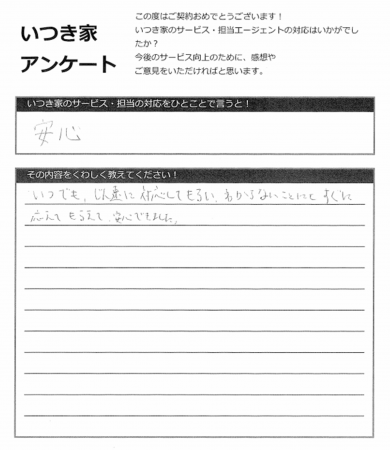 いつき家
アンケート
この度はご契約おめでとうございます！
いつき家のサービス・担当エージェントの対応はいかがでし
たか？
今後のサービス向上のために、感想や
ご意見をいただければと思います。
いつき家のサービス・担当の対応をひとことで言うと！
安心
その内容をくわしく教えてください！
いつでも、じん速に対応してもらい、わからないことにも すぐに
応えてもらえて、安心できました。